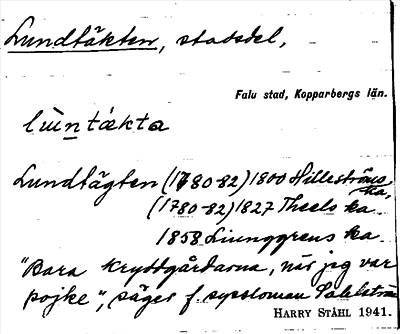 Lundtäkten, stadsdel,
Falu stad, Kopparbergs län.
lùn̲tǽkta
Lundtägten (1780-82) 1800 Hilleströms
ka,
(1780-82) 1827 Theels ka.
1858 Liunggrens ka.
"Bara kryddgårdarna, när jeg var
pojke", säger f. syssloman Sahlström
HARRY STÅHL 1941.